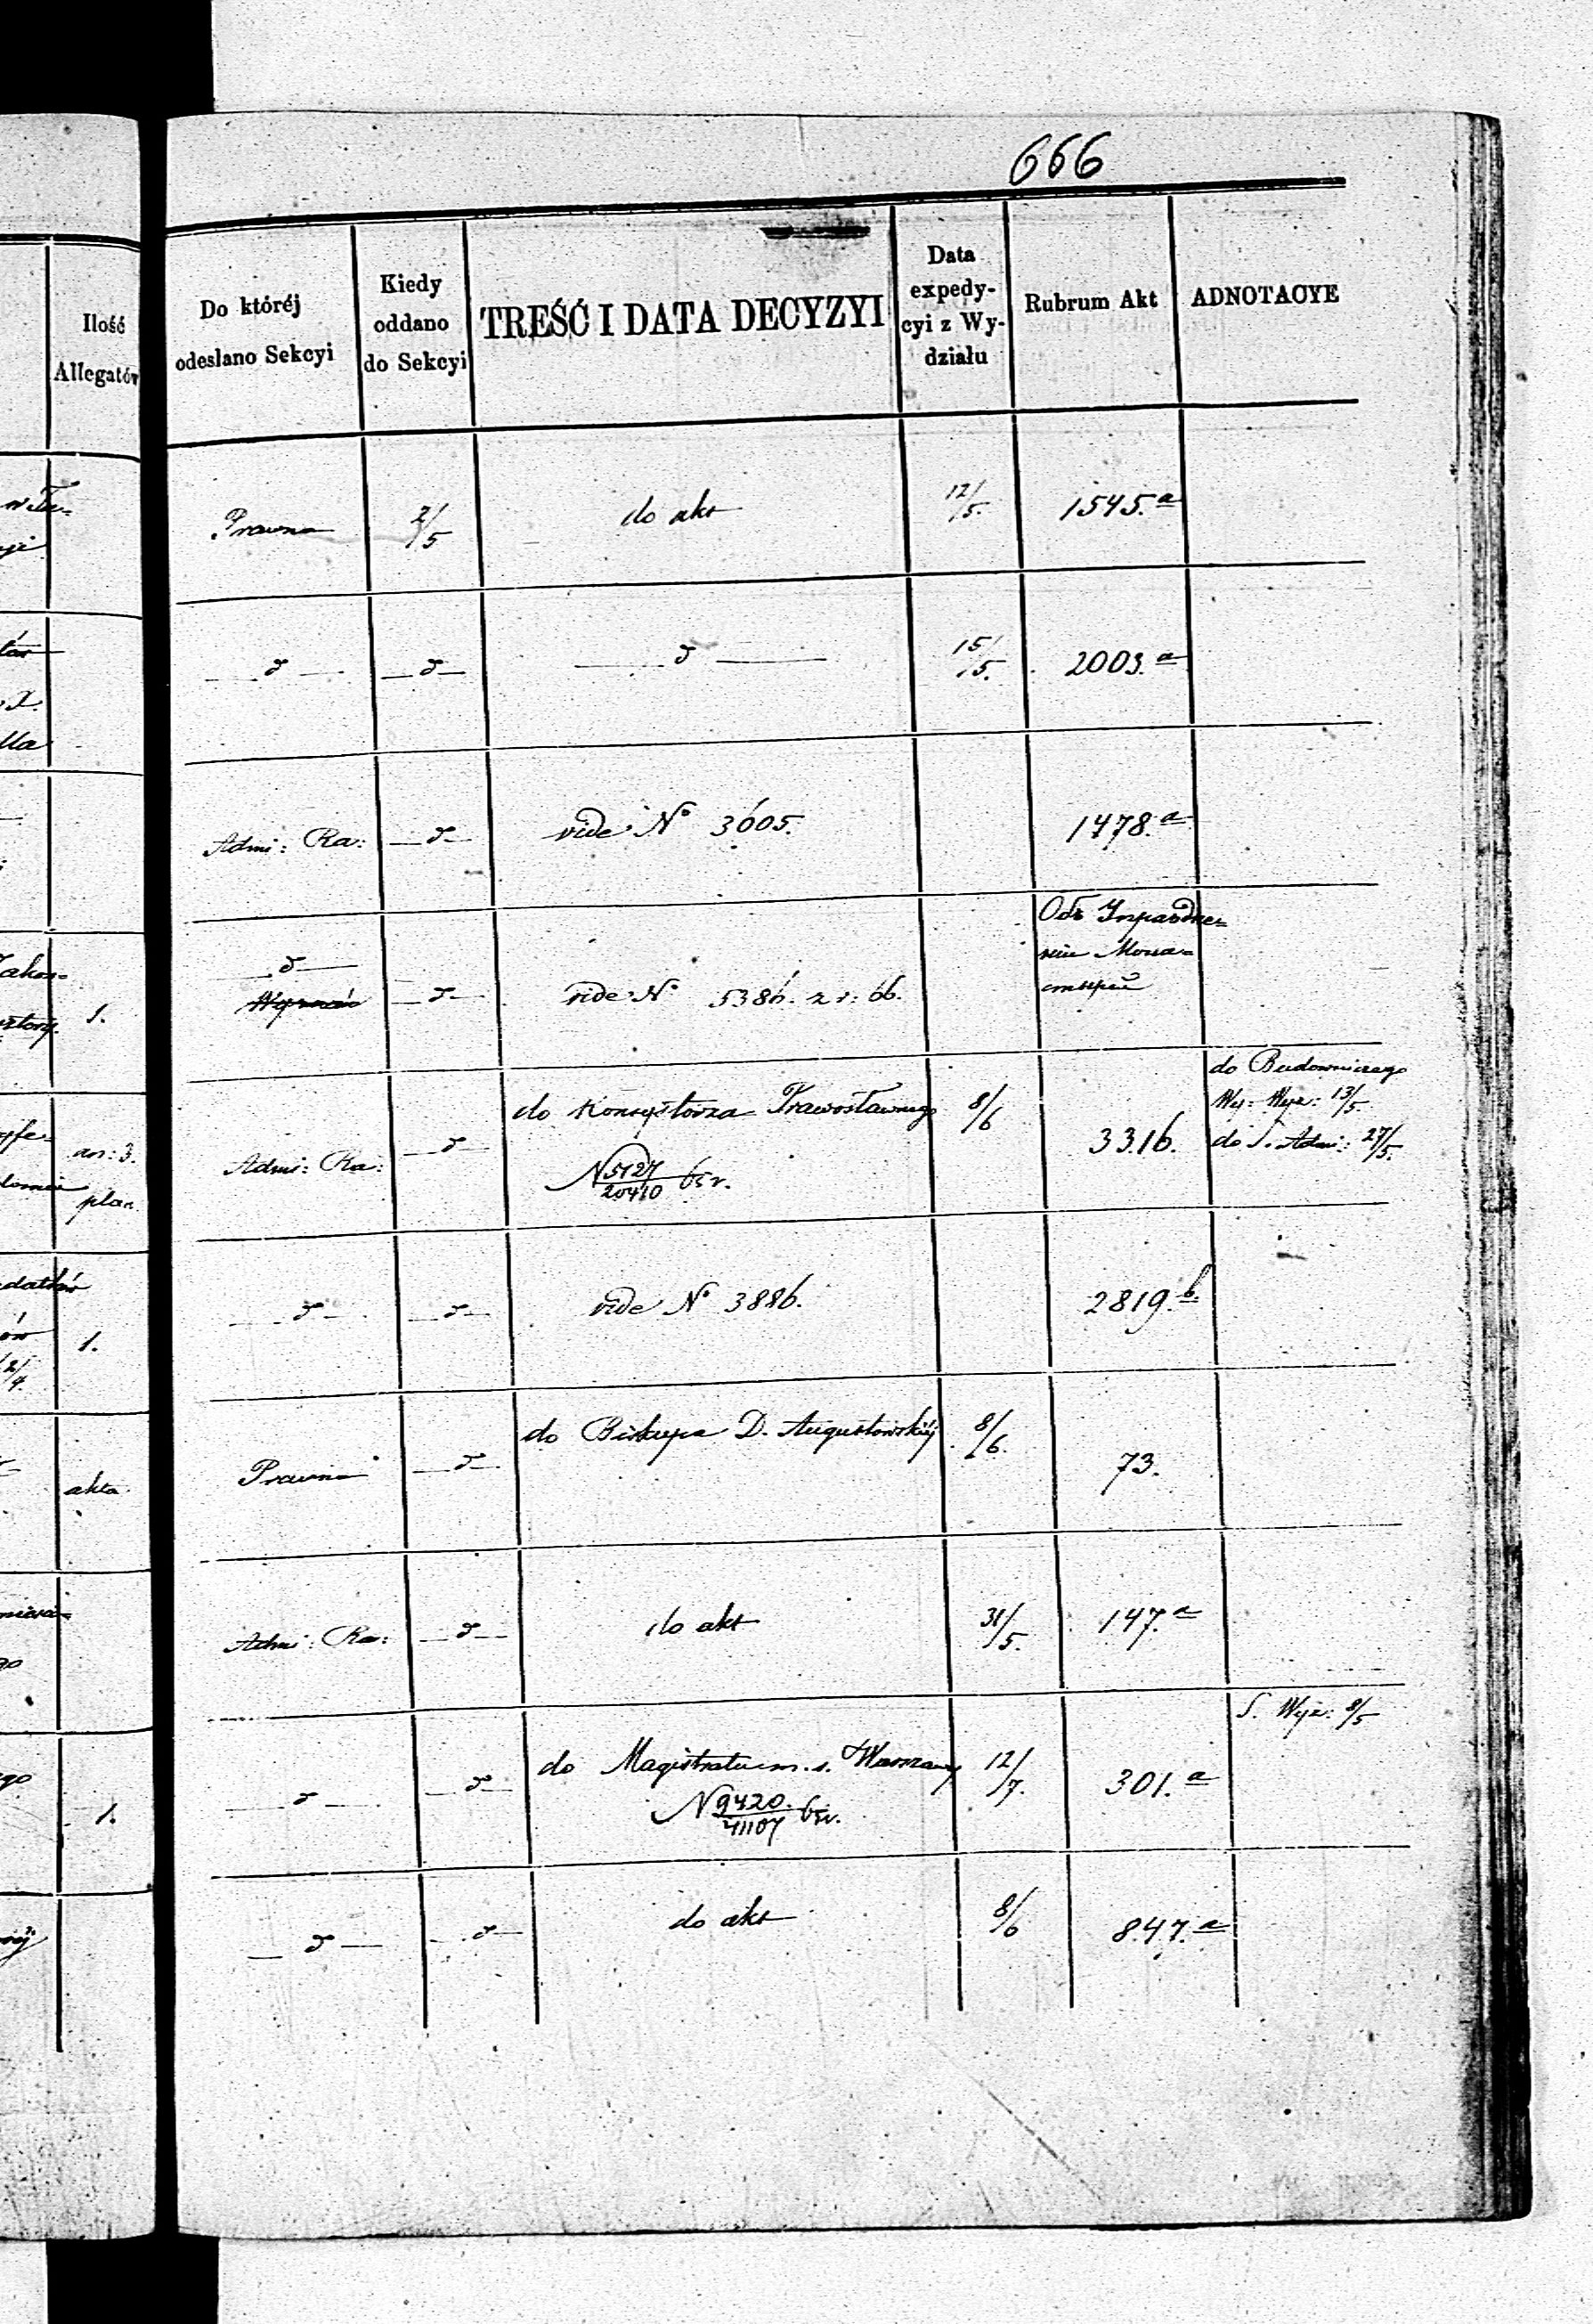 666
Ilość
Allegatów
Do któréj
odesłano Sekcyi
Kiedy
oddano
do Sekcyi
TREŚĆ I DATA DECYZYI
Data
expedy-
cyi z Wy-
działu
Rubrum Akt
ADNOTACYE
Prawna
2/5
do akt
12/5.
1545.a
d
d
d
15/5.
2003.a
Admi: Ra:
d
vide No 3605.
1478.a
1.
d
d
vide No 5386. z r: 66.
Объ Упраздне=
нiи Мона=
стырей
an: 3.
plan.
Admi: Ra:
d
do Konsystorza Prawosławnego
N 5127/20410 65 r.
8/6
3316.
do Budowniczego
Wy: Wyz: 13/5.
do S. Admi: 27/5.
1.
d
d
vide No 3886.
2819.b.
akta
Prawna
d
do Biskupa D. Augustowskiéj
8/6.
73.
Admi: Ra:
d
do akt
31/5.
147.a
1.
d
d
do Magistratu m. s. Warszawy
N 9420./41107 65 r.
12/7.
301.a
S. Wyz: 8/5
d
d
do akt
8/6
847.a